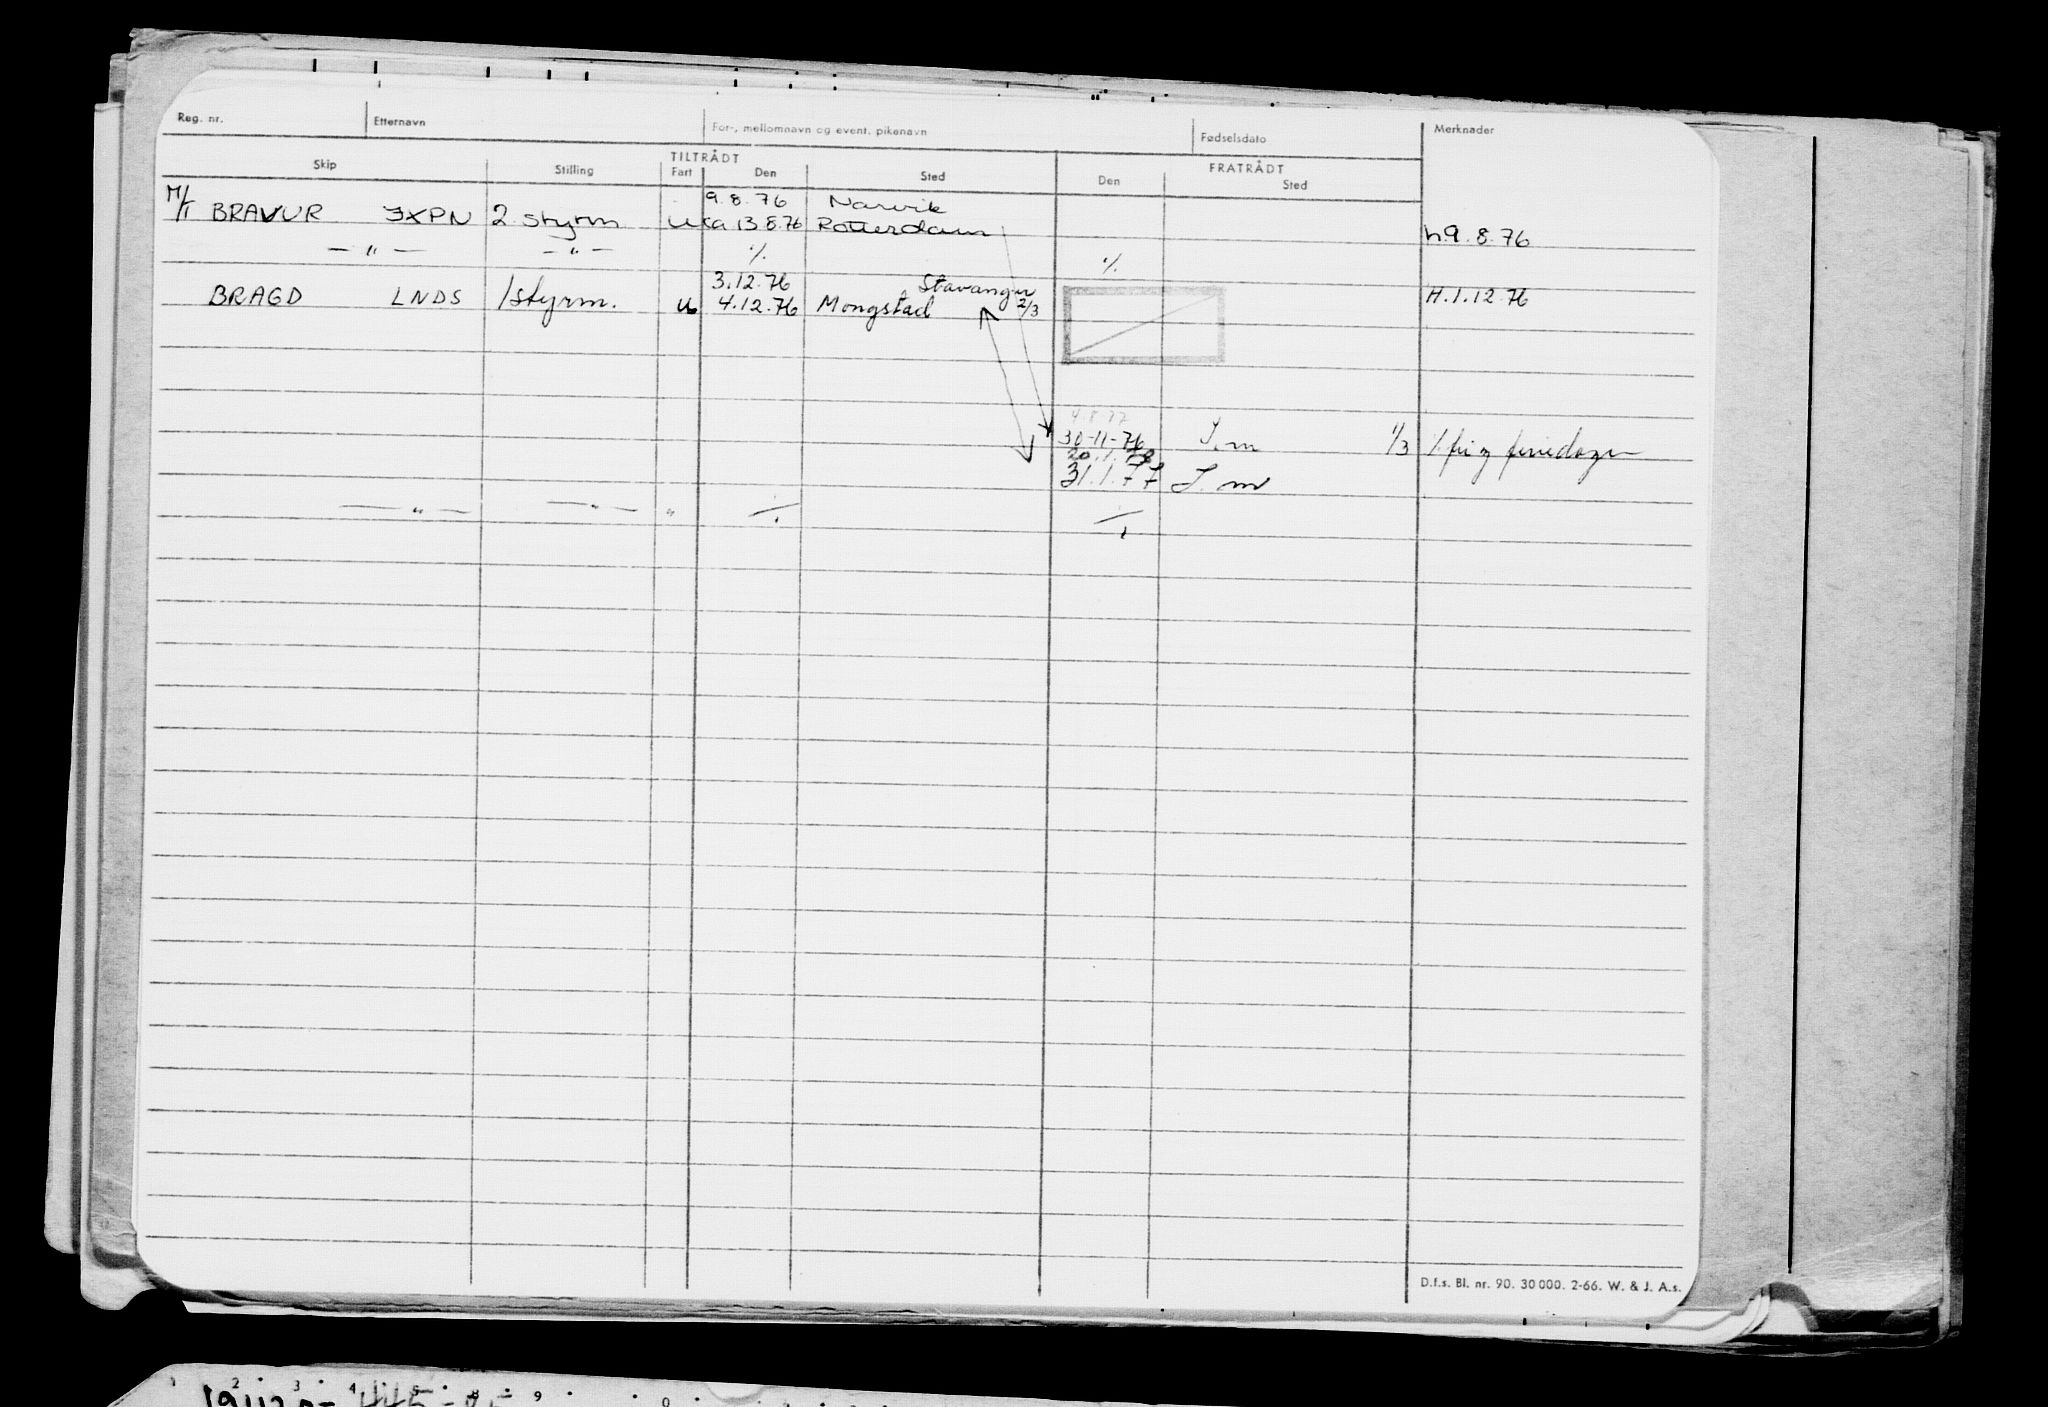 Reg. nr. Etternavn For-, mellomnavn og event. pikenavn Fødselsdato Merknader
TILTRÅDT FRATRÅDT
Skip Stilling Fart Den Sted Den Sted
9.8.76 Narvik
M/T BRAVUR JXPN 2 styrm u ca 13.8.76 Rotterdam h.9.8.76
— " — — " — ٪ ٪
3.12.76 Stavanger
BRAGD LNDS 1styrm. u 4.12.76 Mongstad 2/3 H.1.12.76
30-11-76 S.m 1/3
31.1.77 S.m
— " — — " — "
D.f.s. Bl. nr. 90. 30 000. 2-66. W. & J. A.s.
2 3 4 5 8 9